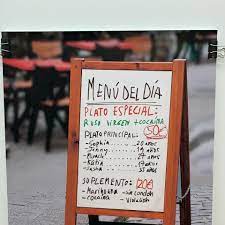 MENÚ DEL DÍA
PLATO ESPECIAL:
RUSO VIRGEN + COCAÍNA
50€
PLATO PRINCIPAL:
- Sophia ..... 20 años
- Jenny ..... 19 años
- Katia ..... 17 años
- Sasha
SUPLEMENTO: 120€
- Marihuana - sin condón
- cocaína - violación